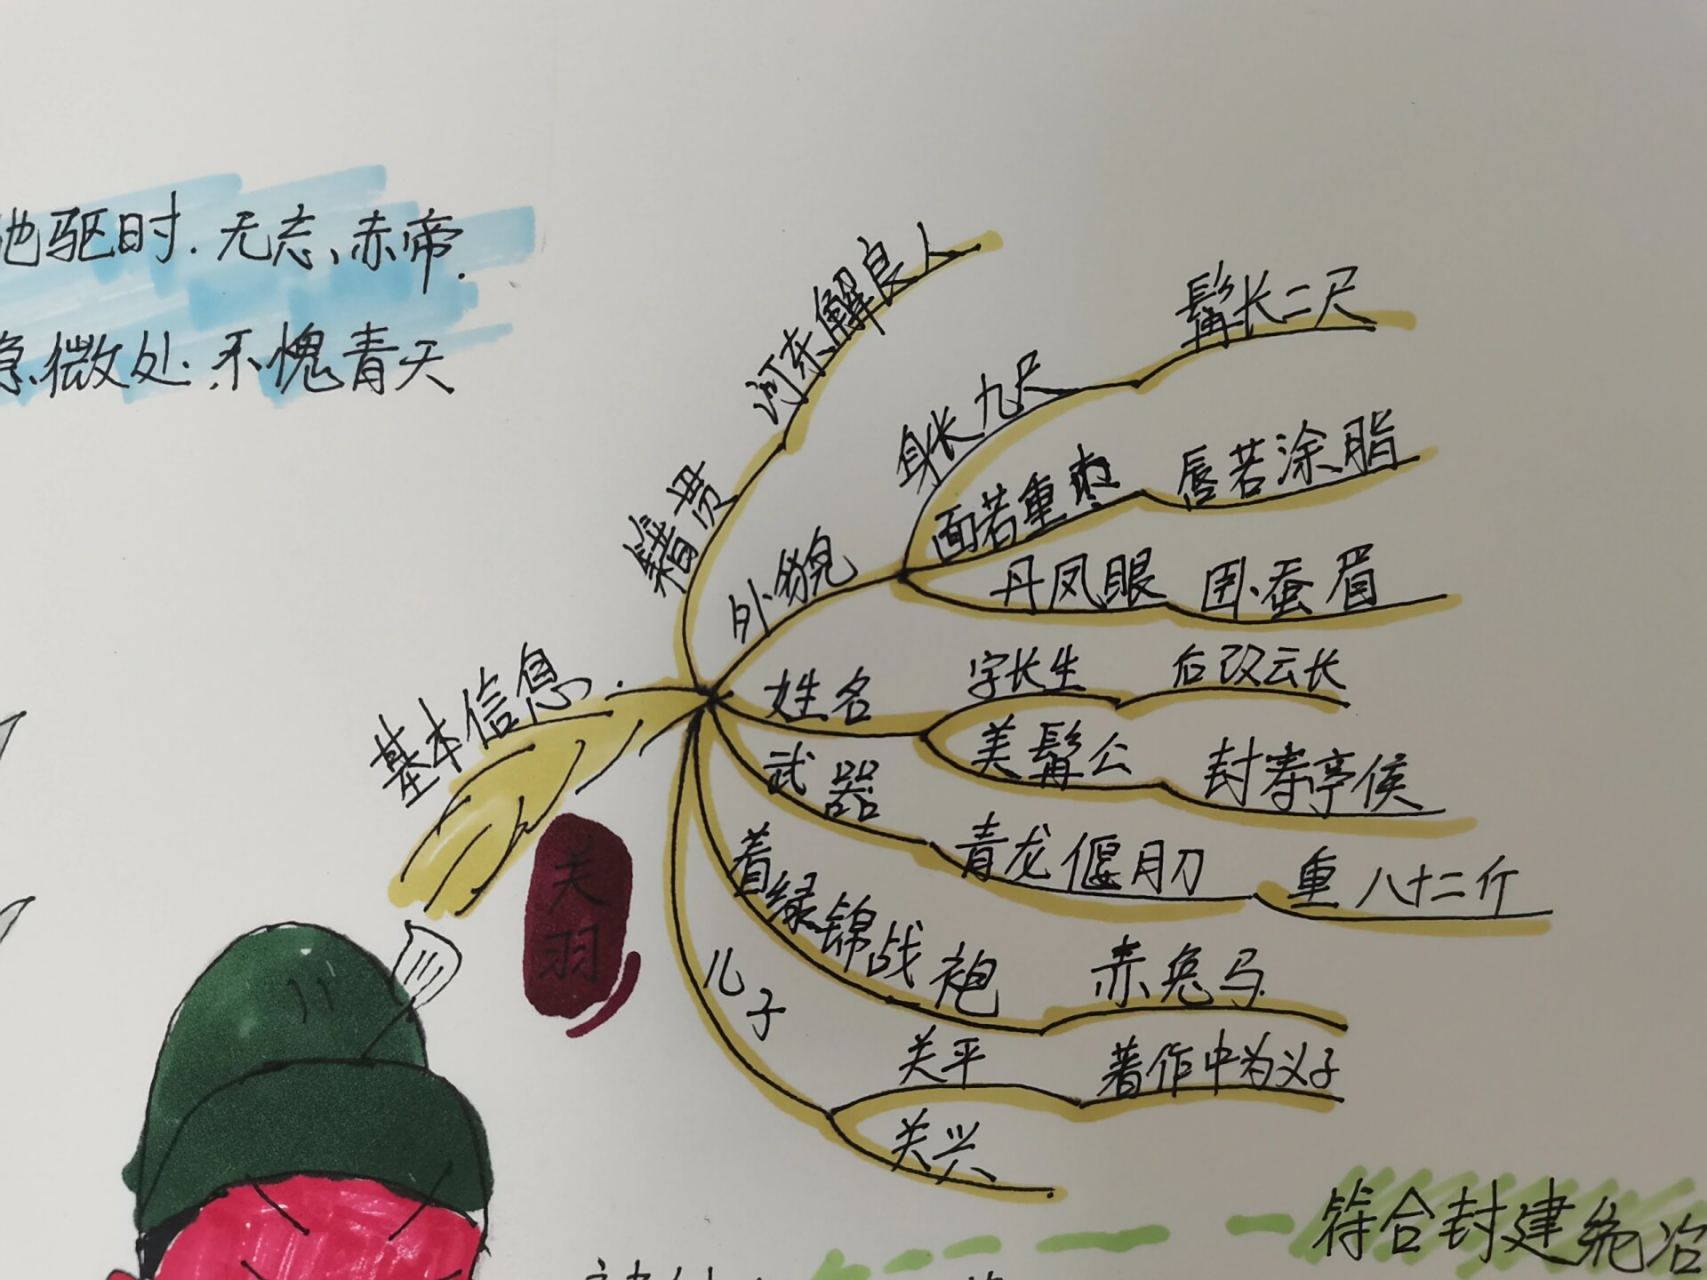 驰驱时.无忘、赤帝.
隐.微处.不愧青天
基本信息
关
羽
籍贯
河东解良人
外貌
身长九尺
髯长二尺
面若重枣
唇若涂脂
丹凤眼
卧蚕眉
姓名
字长生
后改云长
美髯公
封寿亭侯
武器
青龙偃月刀
重八十二斤
着绿锦战袍
赤兔马
儿子
关平
著作中为义子
关兴
符合封建统治